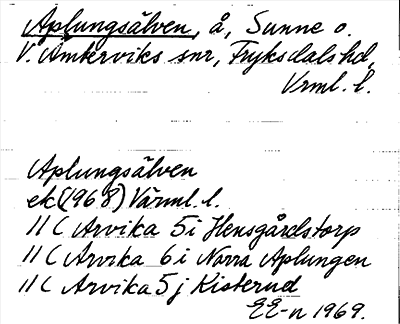 Aplungsälven, å, Sunne o.
V. Ämterviks snr, Fryksdals hd,
Vrml. l.
Aplungsälven
ek (1968) Värml. l.
11 C Arvika 5 i Hensgårdstorp
11 C Arvika 6 i Norra Aplungen
11 C Arvika 5 j Kisterud
EE-n 1969.